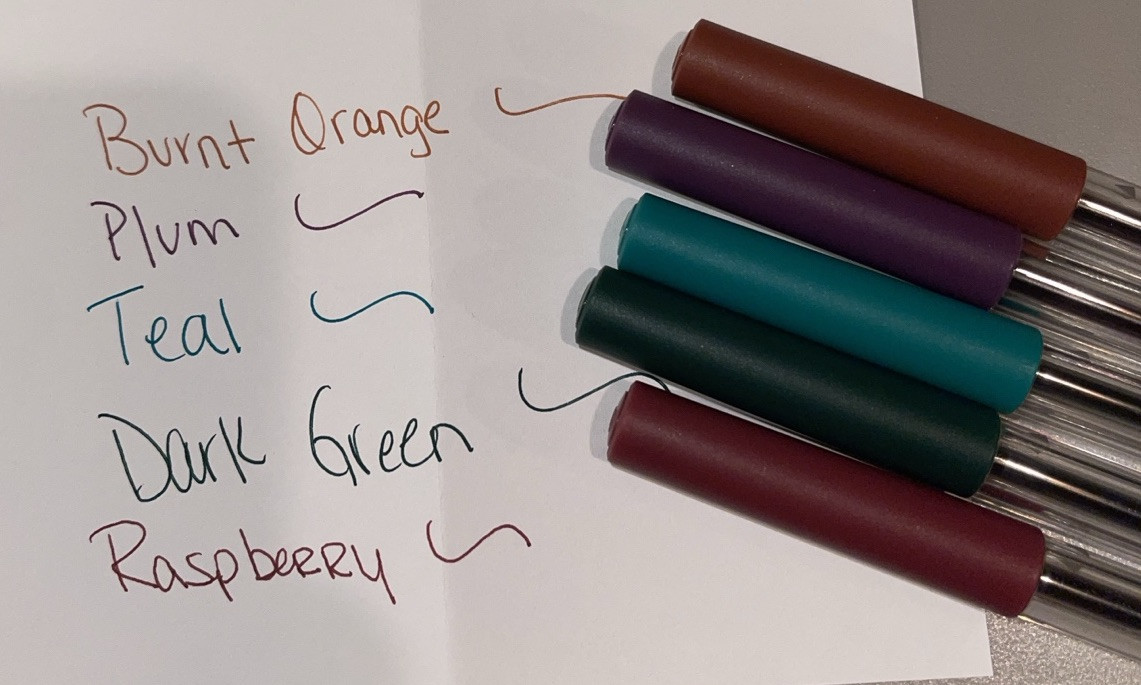 Burnt Orange
Plum
Teal
Dark Green
Raspberry